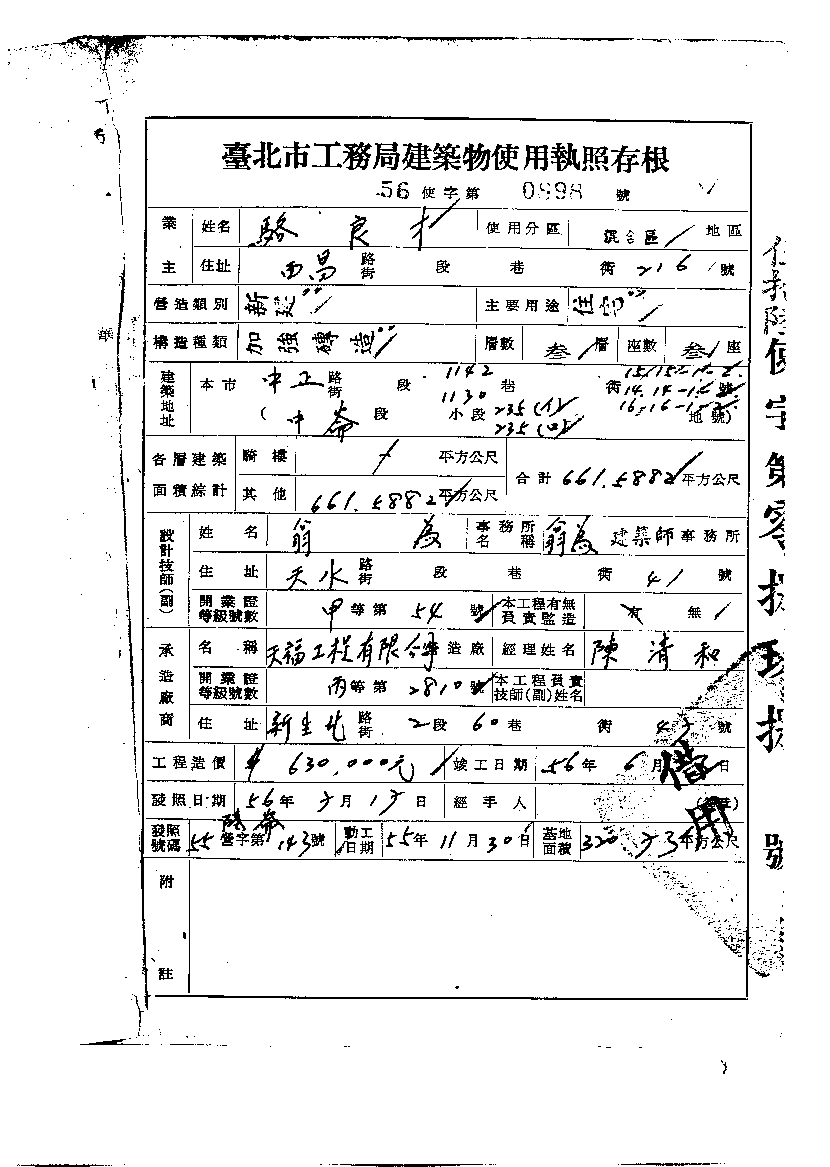 臺北市工務局建築物使用執照存根
56 使字第 0898 號
業主 姓名 駱良才 使用分區 混合區 地區
住址 西昌 路街 段 巷 街 216 號
營造類別 新建 主要用途 住宅
構造種類 加強磚造 層數 叁 層 座數 叁 座
建築地址 本市 中正 路街 段 1142 1130 巷 街 號
( 中崙 段 小段 235(1) 235(口) 地號)
各層建築面積綜計 騎樓 平方公尺 合計 661.5882 平方公尺
其他 661.5882 平方公尺
設計技師(副) 姓名 翁為 事務所名稱 翁為 建築師事務所
住址 天水 路街 段 巷 街 41 號
開業證等級號數 甲等第 54 號 本工程有無負責監造 有 無
承造廠商 名稱 天福工程有限公司 造廠 經理姓名 陳清和
開業證等級號數 丙等第 2810 號 本工程負責技師(副)姓名
住址 新生北 路街 2段 60巷 街 號
工程造價 $ 630,000元 竣工日期 56年 6月 日
發照日期 56年 月 日 經手人
發照號碼 55 營字第 143 號 動工日期 55年 11月 30日 基地面積 320 平方公尺
附註
借用
號